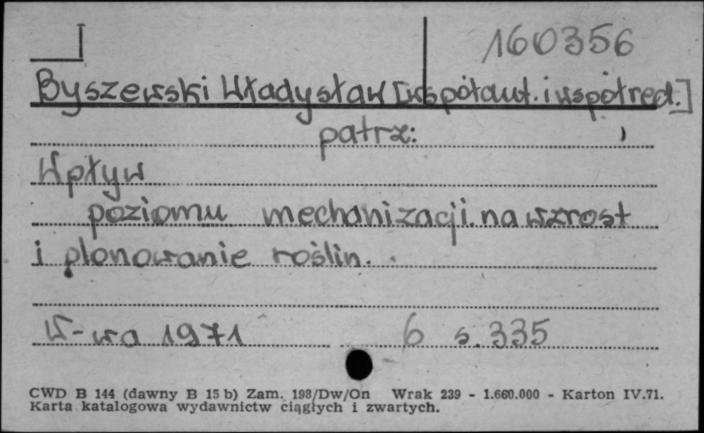 160356
Byszewski Władysław [współaut. i współred.]
patrz:
Wpływ
poziomu mechanizacji na wzrost
i plonowanie roślin.
W-wa 1971 6 s. 335
CWD B 144 (dawny B 15 b) Zam. 198/Dw/On Wrak 239 - 1.660.000 - Karton IV.71.
Karta katalogowa wydawnictw ciągłych i zwartych.